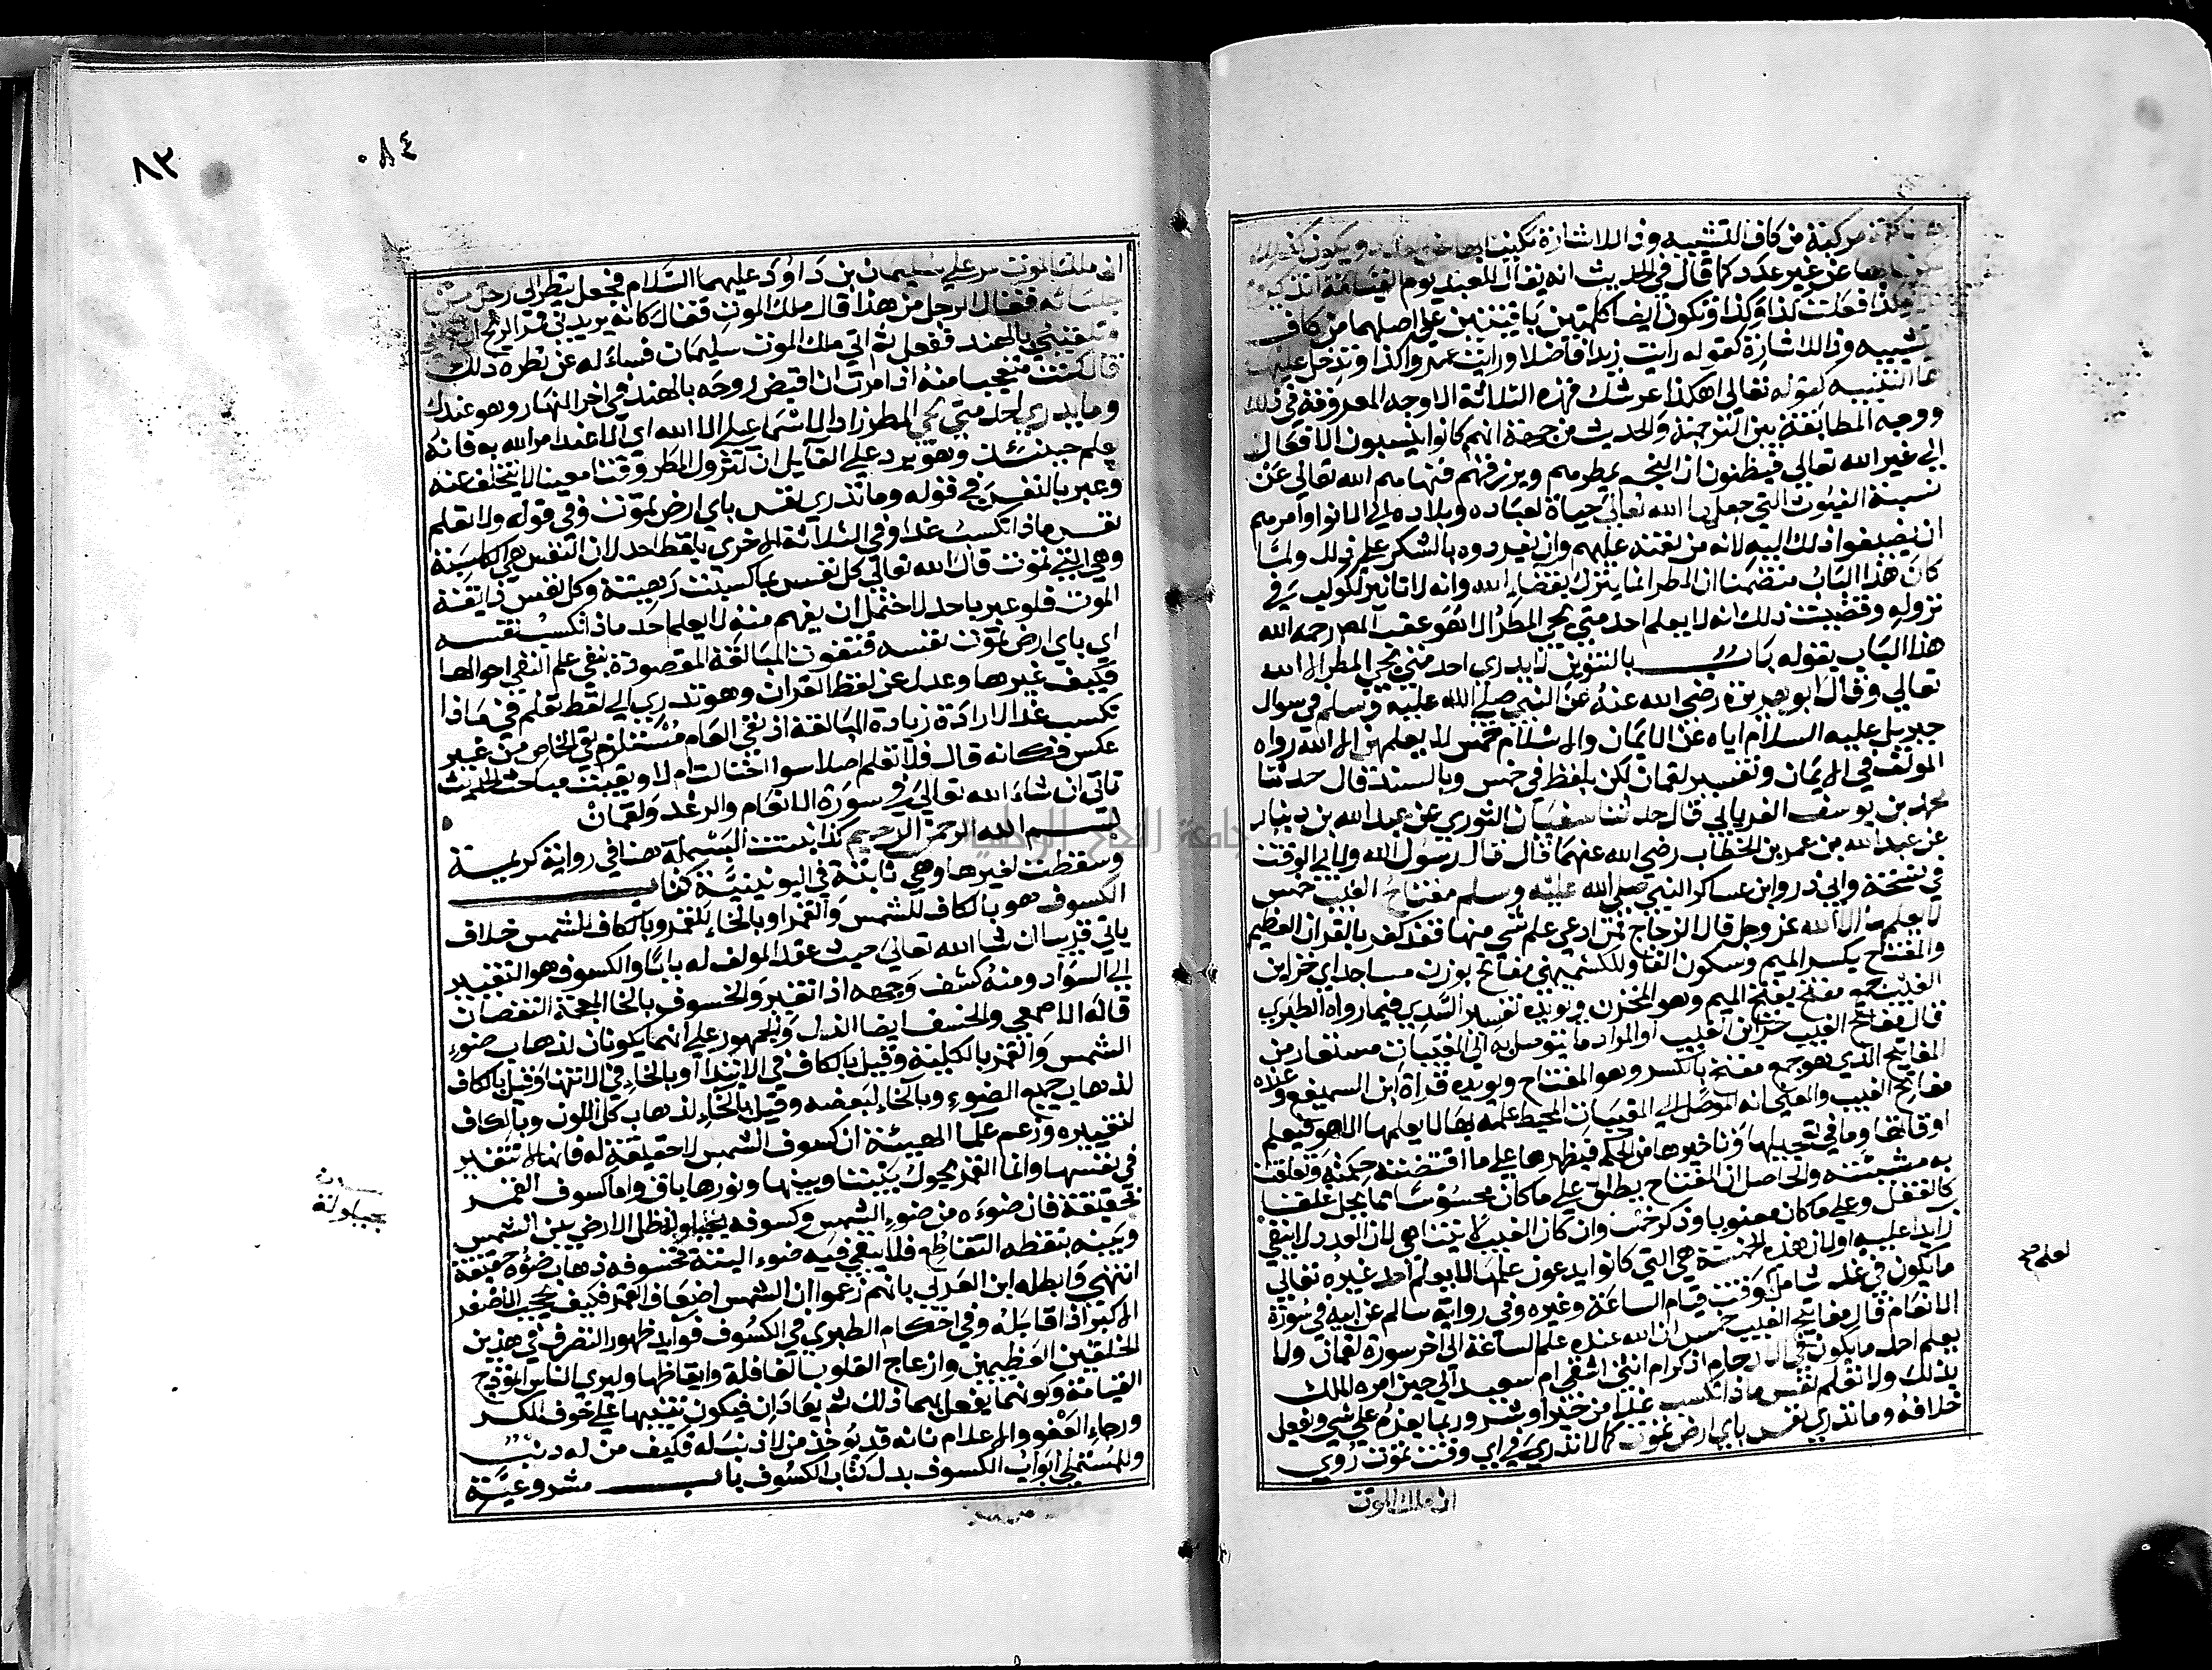 مركبة من كاف التشبيه وذا للاشارة مكنيا بها عن ويكون كذلك
عن غير عدد كما قال في الحديث انه يقال للعبد يوم القيامة اتذكر يوم
كذا فعلت كذا وكذا وتكون ايضا كلمتين باقيتين على اصلهما من كاف
التشبيه وذا للاشارة كقوله رايت زيدا فاضلا ورايت عمروا كذا وتدخل عليها
ها التنبيه كقوله تعالى اهكذا عرشك فهذه الثلاثة الاوجه المعروفة في ذلك
ووجه المطابقة بين الترجمة والحديث من جهة انهم كانوا ينسبون الافعال
الى غير الله تعالى فيظنون ان النجم يمطرهم ويرزقهم فنهاهم الله تعالى عن
نسبة الغيوث التي جعلها الله تعالى حياة لعباده وبلاده الى الانوا وامرهم
ان يضيفوا ذلك اليه لانه من نعمته عليهم وان يفردوه بالشكر على ذلك ولما
كان هذا الباب متضمنا ان المطر انما ينزل بقضاء الله وانه لا تاثير للكواكب في
نزوله وقضيت ذلك انه لا يعلم احد متى يجي المطر الا هو عقب المص رحمه الله
هذا الباب بقوله باب بالتنوين لا يدري احد متى يجي المطر الا الله
تعالى وقال ابو هريرة رضي الله عنه عن النبي صلى الله عليه وسلم في سوال
جبريل عليه السلام اياه عن الايمان والاسلام خمس لا يعلمهن الا الله رواه
المولف في الايمان وتفسير لقمان لكن بلفظ في خمس وبالسند قال حدثنا
محمد بن يوسف الفريابي قال حدثنا سفيان الثوري عن عبد الله بن دينار
عن عبد الله بن عمر بن الخطاب رضي الله عنهما قال قال رسول الله ولابي الوقت
في نسخة وابي ذر وابن عساكر النبي صلى الله عليه وسلم مفتاح الغيب خمس
لا يعلمها الا الله عز وجل قال الزجاج فمن ادعى علم شي منها فقد كفر بالقران العظيم
والمفتاح بكسر الميم وسكون الفا وللكشميهني مفاتح بوزن مساجد اي خزاين
الغيب جمع مفتح بفتح الميم وهو المخزن ويويده تفسير السدي فيما رواه الطبري
قال مفاتح الغيب خزاين الغيب او المراد ما يتوصل به الى المغيبات مستعار من
المفاتيح الذي هو جمع مفتح بالكسر وهو المفتاح ويويده قراة ابن السميفع وعنده
مفاتيح الغيب والمعنى انه الموصل الى المغيبات المحيط علمه بها لا يعلمها الا هو فيعلم
اوقاتها وما في تعجيلها وتاخيرها من الحكم فيظهرها على ما اقتضته حكمته وتعلقت
به مشيئته والحاصل ان المفتاح يطلق على ما كان محسوسا مما يحل غلقا
كالقفل وعلى ما كان معنويا وذكر خمسا وان كان الغيب لا يتناهى لان العدد لا ينفي
زايدا عليه او لان هذه الخمسة هي التي كانوا يدعون علمها لا يعلم احد غيره تعالى
ما يكون في غد شامل لوقت قيام الساعة وغيره وفي رواية سالم عن ابيه في سورة
الانعام قال مفاتح الغيب خمس ان الله عنده علم الساعة الى اخر سورة لقمان ولا
يعلم احد ما يكون في الارحام اذكر ام انثى اشقي ام سعيد الى حين امره الملك
بذلك ولا تعلم نفس ماذا تكسب غدا من خير او شر وربما يعزم على شي ويفعل
خلافه وما تدري نفس باي ارض تموت كما لا تدري في اي وقت تموت روي
ان ملك الموت
لعلم صح
٨٣
٠٨٤
ان ملك الموت مر على سليمان بن داود عليهما السلام فجعل ينظر الى رجل من
جلسائه فقال الرجل من هذا قال ملك الموت فقال كانه يريدني فمر الريح ان تحملني
وتلقيني بالهند ففعل ثم اتى ملك الموت سليمان فساله عن نظره ذلك
قال كنت متعجبا منه اذ امرت ان اقبض روحه بالهند في اخر النهار وهو عندك
وما يدري احد متى يجي المطر زاد الاسماعيلي الا الله اي الا عند امر الله به فانه
يعلم حينئذ وهو يرد على القايل ان لنزول المطر وقتا معينا لا يتخلف عنه
وعبر بالنفس في قوله وما تدري نفس باي ارض تموت وفي قوله ولا تعلم
نفس ماذا تكسب غدا وفي الثلاثة الاخري بلفظ احد لان النفس هي الكاسبة
وهي التي تموت قال الله تعالى كل نفس بما كسبت رهينة وكل نفس ذايقة
الموت فلو عبر باحد لاحتمل ان يفهم منه لا يعلم احد ماذا تكسب نفسه
اي باي ارض تموت نفسه فتفوت المبالغة المقصودة بنفي علم النفس احوالها
فكيف غيرها وعدل عن لفظ القران وهو تدري الى لفظ تعلم في ماذا
تكسب غدا لارادة زيادة المبالغة اذ نفي العام مستلزم نفي الخاص من غير
عكس فكانه قال فلا تعلم اصلا سوا احتالت ام لا وبقيت مباحث الحديث
تاتي ان شاء الله تعالى في سورة الانعام والرعد ولقمان
بسم الله الرحمن الرحيم كذا ثبتت البسملة هنا في رواية كريمة
وسقطت لغيرها وهي ثابتة في اليونينية كتاب
الكسوف هو بالكاف للشمس والقمر او بالخاء للقمر وبالكاف للشمس خلاف
ياتي قريبا ان شا الله تعالى حيث عقد المولف له بابا والكسوف هو التغير
الى السواد ومنه كسف وجهه اذا تغير والخسوف بالخا المعجمة النقصان
قاله الاصمعي والخسف ايضا الذل والجمهور على انهما يكونان لذهاب ضوء
الشمس والقمر بالكلية وقيل بالكاف في الابتدا وبالخاء في الانتها وقيل بالكاف
لذهاب جميع الضوء وبالخاء لبعضه وقيل بالخاء لذهاب كل اللون وبالكاف
لتغييره وزعم علما الهيئة ان كسوف الشمس لا حقيقة له فانها لا تتغير
في نفسها وانما القمر يحول بيننا وبينها ونورها باق واما كسوف القمر
فحقيقة فان ضوءه من ضوء الشمس وكسوفه بحيلولة ظل الارض بين الشمس
وبينه بنقطه التقاطع فلا يبقى فيه ضوء البتة فخسوفه ذهاب ضوه حقيقة
انتهى وابطله ابن العربي بانهم زعموا ان الشمس اضعاف القمر فكيف يحجب الاصغر
الاكبر اذا قابله وفي احكام الطبري في الكسوف فوايد ظهور التصرف في هذين
الخلقين العظيمين وازعاج القلوب الغافلة وايقاظها وليري الناس انموذج
القيامة وكونهما يفعل بهما ذلك ثم يعادان فيكون تنبيها على خوف المكر
ورجاء العفو والاعلام بانه قد يوخذ من لا ذنب له فكيف من له ذنب
وللمستملي ابواب الكسوف بدل كتاب الكسوف باب مشروعية
بحيلولة
جامعة النجاح الوطنية